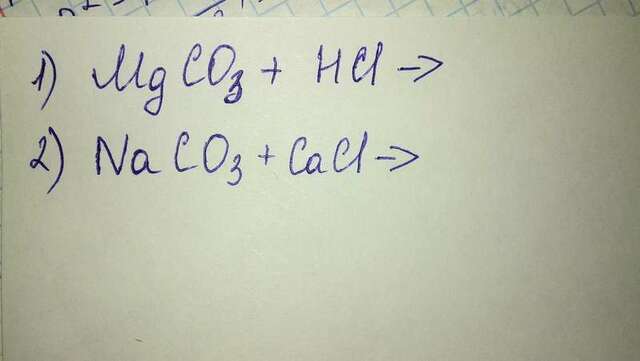 1) MgCO₃ + HCl →
2) NaCO₃ + CaCl →